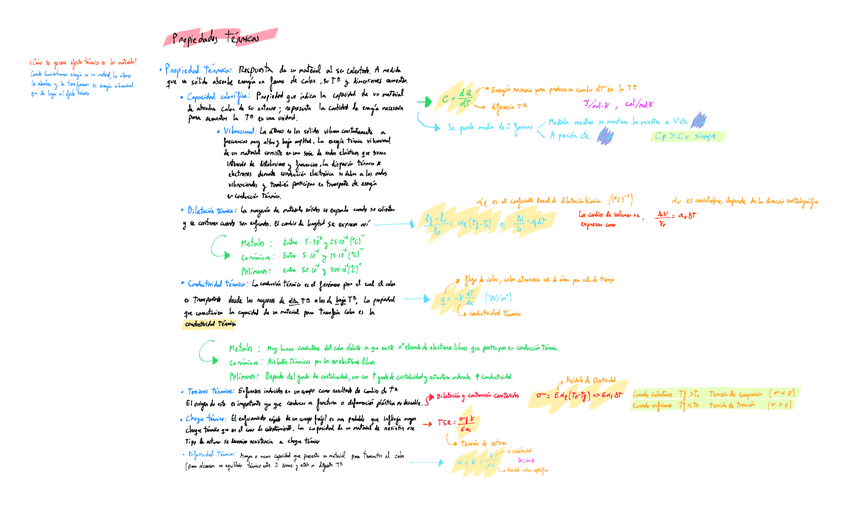 Propiedades térmicas
¿Cómo se genera efecto térmico en los materiales?
Cuando suministramos energía a un material, los átomos
la absorben y la transforman en energía vibracional
que da lugar al efecto térmico
• Propiedad Térmica: Respuesta de un material al ser calentado. A medida
que un sólido absorbe energía en forma de calor, su Tª y dimensiones aumentan.
• Capacidad calorífica: Propiedad que indica la capacidad de un material
de absorber calor de su entorno; representa la cantidad de energía necesaria
para aumentar la Tª en una unidad.
C = dQ/dT
Energía necesaria para producir un cambio dT en la Tª
diferencia Tª
J/mol·K , cal/mol·K
Se puede medir de 2 formas
Medirla mientras se mantiene la muestra a V cte
A presión cte
Cp > Cv siempre
• Vibracional: Los átomos en los sólidos vibran constantemente a
frecuencias muy altas y baja amplitud. La energía térmica vibracional
de un material consiste en una serie de ondas elásticas que tienen
de distribuciones y frecuencias. La dispersión térmica de
electrones durante conducción electrónica se deben a las ondas
vibracionales y también participan en transporte de energía
en conducción térmica.
• Dilatación térmica: La mayoría de materiales sólidos se expande cuando se calientan
y se contraen cuando son enfriados. El cambio de longitud se expresa así
(lf - lo)/lo = αl (Tf - To) o, Δl/lo = αl ΔT
αl es el coeficiente lineal de dilatación térmica (ºC)⁻¹
Los cambios de volumen se
expresan como
ΔV/Vo = αv ΔT
αv es anisotrópico, depende de la dirección cristalográfica
Metales: Entre 5·10⁻⁶ y 25·10⁻⁶ (ºC)⁻¹
Cerámicos: Entre 5·10⁻⁶ y 15·10⁻⁶ (ºC)⁻¹
Polímeros: Entre 50·10⁻⁶ y 300·10⁻⁶ (ºC)⁻¹
• Conductividad térmica: La conducción térmica es el fenómeno por el cual el calor
es transportado desde las regiones de alta Tª a las de baja Tª. La propiedad
que caracteriza la capacidad de un material para transferir calor es la
conductividad térmica
q = -k dT/dx (W/m²)
flujo de calor, calor atraviesa ud. de área por ud. de tiempo
conductividad térmica
Metales: Muy buenos conductores del calor debido a que existe nº elevado de electrones libres que participan en conducción térmica.
Cerámicos: Aislantes térmicos por los no electrones libres
Polímeros: Depende del grado de cristalinidad, uno con ↑ grado de cristalinidad y estructura ordenada ↑ conductividad
• Tensiones térmicas: Esfuerzos inducidos en un cuerpo como resultado de cambios de Tª
El origen de esto es importante ya que conducen a fractura o deformación plástica no deseable.
Dilatación y contracción confinadas
Módulo de Elasticidad
σ = E αl (To - Tf) => E αl ΔT
Cuando calentamos Tf > To Tensión de compresión (σ < 0)
Cuando enfriamos Tf < To tensión de tracción (σ > 0)
• Choque térmico: El enfriamiento rápido de un cuerpo frágil es más probable que inflija mayor
choque térmico que en el caso de calentamiento. La capacidad de un material de resistir este
tipo de rotura se denomina resistencia a choque térmico
TSR = σf k / E αl
Tensión de rotura
• Difusividad Térmica: Mayor o menor capacidad que presenta un material para transmitir el calor
(para alcanzar un equilibrio térmico entre 2 zonas y estén a distinta Tª
conductividad